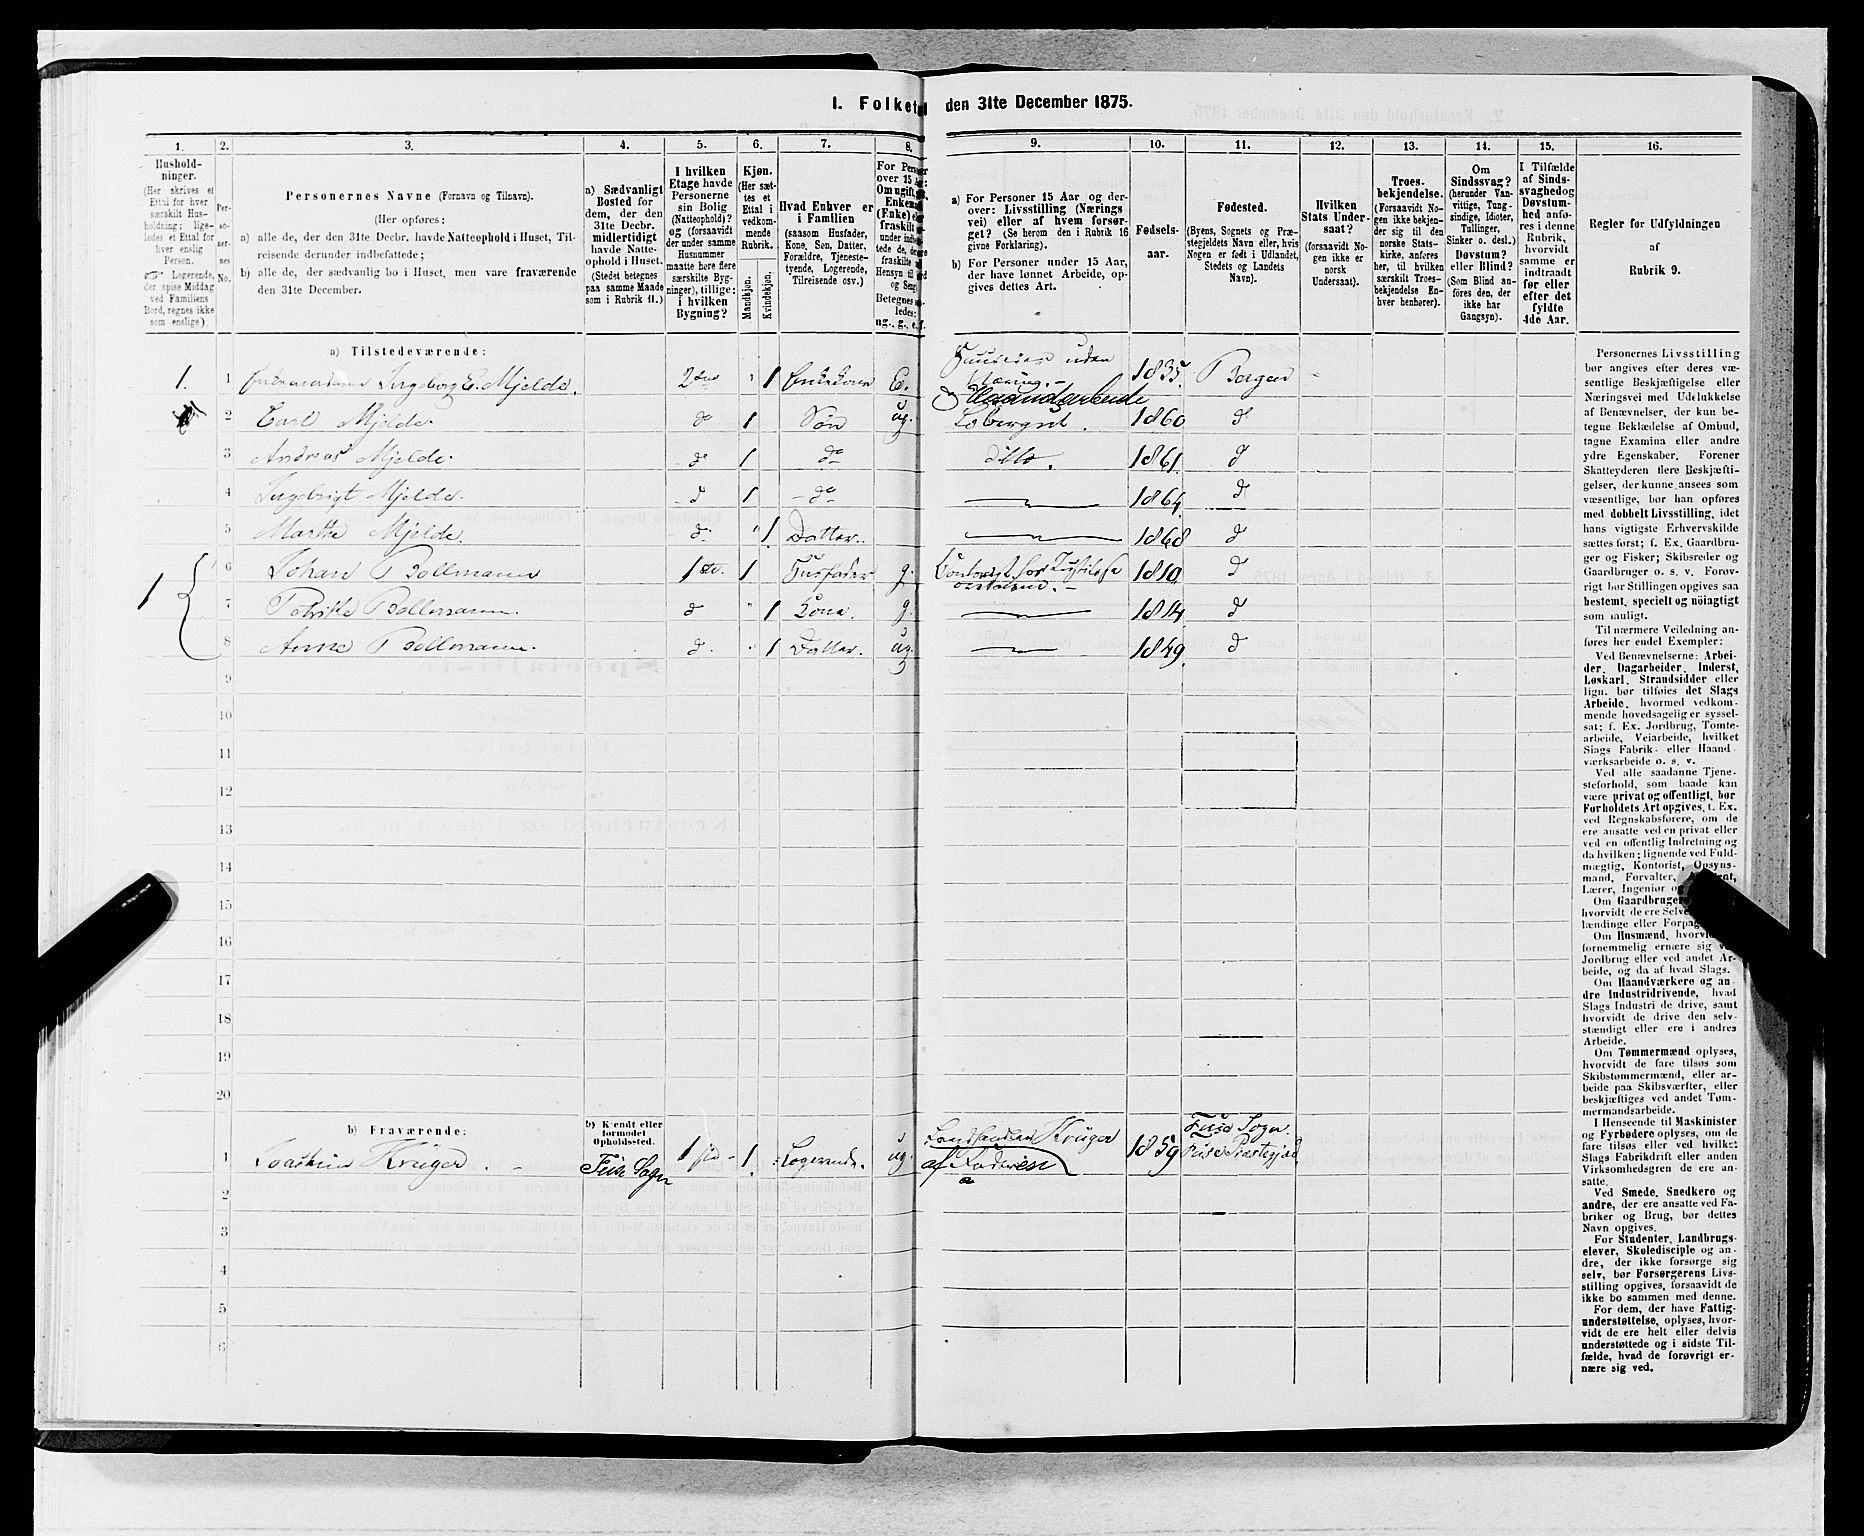 1. Folketal den 31te December 1875.
1. 2. 3. 4. 5. 6. 7. 8. 9. 10. 11. 12. 13. 14. 15. 16.
Hushold-
ninger.
(Her skrives et
Ettal for hver
særskilt Hus-
holdning; lige-
ledes et Ettal for
hver enslig
Person.
Logerende,
der spise Middag
ved Familiens
Bord, regnes ikke
som enslige).
Per-
so-
ner-
nes
No.
Personernes Navne (Fornavn og Tilnavn).
(Her opføres:
a) alle de, der den 31te Decbr. havde Natteophold i Huset, Til-
reisende derunder indbefattede;
b) alle de, der sædvanlig bo i Huset, men vare fraværende
den 31te December.
a) Sædvanligt
Bosted for
dem, der den
31te Decbr.
midlertidigt
havde Natte-
ophold i Huset.
(Stedet betegnes
paa samme Maade
som i Rubrik 11.)
I hvilken
Etage havde
Personerne
sin Bolig
(Natteophold)?
og (forsaavidt
der under samme
Husnummer
maatte høre flere
særskilte Byg-
ninger), tillige:
i hvilken
Bygning?
Kjøn.
(Her sæt-
tes et
Ettal i
vedkom-
mende
Rubrik.
Mandkjøn.
Kvindekjøn.
Hvad Enhver er
i Familien
(saasom Husfader,
Kone, Søn, Datter,
Forældre, Tjeneste-
tyende, Logerende,
Tilreisende osv.)
For Pers
over 15 A
Om ugift, g
Enkem
(Enke) el
fraskilt
under indb
tede de, de
fraskilte
Hensyn til
og Seng.
Betegnes s
ledes:
ug., g., e. f.
a) For Personer 15 Aar og der-
over: Livsstilling (Nærings
vei) eller af hvem forsør-
get? (Se herom den i Rubrik 16
givne Forklaring).
b) For Personer under 15 Aar,
der have lønnet Arbeide, op-
gives dettes Art.
Fødsels-
aar.
Fødested.
(Byens, Sognets og Præ-
stegjeldets Navn eller, hvis
Nogen er født i Udlandet,
Stedets og Landets
Navn).
Hvilken
Stats Under-
saat?
(forsaavidt No-
gen ikke er
norsk
Undersaat).
Troes-
bekjendelse.
(Forsaavidt No-
gen ikke bekjen-
der sig til den
norske Stats-
kirke, anføres
her, til hvilken
særskilt Troes-
bekjendelse En-
hver henhører).
Om
Sindssvag?
(herunder Van-
vittige, Tung-
sindige, Idioter,
Sinker o. desl.)
Døvstum?
eller Blind?
(Som Blind an-
føres den, der
ikke har
Gangsyn).
I Tilfælde
af Sinds-
svaghed og
Døvstum-
hed anfø-
res i denne
Rubrik,
hvorvidt
samme er
indtraadt
før eller
efter det
fyldte
4de Aar.
Regler for Udfyldningen
af
Rubrik 9.
a) Tilstedeværende:
1. 1 Ingeborg E. Mjelde. 2den " 1 E. 1835. Bergen
Haandarbeide
2 Carl Mjelde. do 1 Søn ug. 1860 d
3 Andreas Mjelde. do 1 do ditto. 1861 d
4 Ingebrigt Mjelde. d 1 do 1864. d
5 Marthe Mjelde. d " 1. Datter. 1868 d
1 6 Johan Bollmann 1ste. 1 Husfader g. 1810 d
7 Bollmann. d " 1 Kone. g. 1814. d
8 Anne Bollmann. d. " 1 Datter. ug. 1849. d
9
10
11
12
13
14
15
16
17
18
19
20
b) Fraværende:
b) Kjendt eller
formodet
Opholdssted.
1 Krüger Fuse Sogn 1 1. Logerende. ug. Landhandler Krüger 1859 Fuse Sogn
af Faderen Fuse Præstegjæld
2
3
4
5
6
Personernes Livsstilling
bør angives efter deres væ-
sentlige Beskjæftigelse eller
Næringsvei med Udelukkelse
af Benævnelser, der kun be-
tegne Beklædelse af Ombud,
tagne Examina eller andre
ydre Egenskaber. Forener
Skatteyderen flere Beskjæfti-
gelser, der kunne ansees som
væsentlige, bør han opføres
med dobbelt Livsstilling, idet
hans vigtigste Erhvervskilde
sættes først; f. Ex. Gaardbru-
ger og Fisker; Skibsreder og
Gaardbruger o. s. v. Forøv-
rigt bør Stillingen opgives saa
bestemt, specielt og nøiagtigt
som muligt.
Til nærmere Veiledning an-
føres her endel Exempler:
Ved Benævnelserne: Arbei-
der, Dagarbeider, Inderst,
Løskarl, Strandsidder eller
lign. bør tilføies det Slags
Arbeide, hvormed vedkom-
mende hovedsagelig er syssel-
sat; f. Ex. Jordbrug, Tomte-
arbeide, Veiarbeide, hvilket
Slags Fabrik- eller Haand-
værksarbeide o. s. v.
Ved alle saadanne Tjene-
steforhold, som baade kan
være privat og offentligt, bør
Forholdets Art opgives, t. Ex.
ved Regnskabsførere, om de
ere ansatte ved en privat eller
ved en offentlig Indretning og
da hvilken; lignende ved Fuld-
mægtig, Kontorist, Opsyns-
mand, Forvalter,
Lærer, Ingeniør
Om Gaardbruger
hvorvidt de ere Selv
lændinge eller Forpag
Om Husmænd, hvorvi
fornemmelig ernære sig
Jordbrug eller ved andet Ar-
beide, og da af hvad Slags.
Om Haandværkere og an-
dre Industridrivende, hvad
Slags Industri de drive, samt
hvorvidt de drive den selv-
stændigt eller ere i andres
Arbeide.
Om Tømmermænd oplyses,
hvorvidt de fare tilsøs som
Skibstømmermænd, eller ar-
beide paa Skibsværfter, eller
beskjæftiges ved andet Tøm-
mermandsarbeide.
I Henseende til Maskinister
og Fyrbødere oplyses, om de
fare tilsøs eller ved hvilket
Slags Fabrikdrift eller anden
Virksomhedsgren de ere an-
satte.
Ved Smede, Snedkere og
andre, der ere ansatte ved Fa-
briker og Brug, bør dettes
Navn opgives.
For Studenter, Landbrugs-
elever, Skoledisciple og an-
dre, der ikke forsørge sig
selv, bør Forsørgerens Livs-
stilling opgives, forsaavidt de
ikke bo sammen med denne.
For dem, der have Fattig-
understøttelse, oplyses, hvor-
vidt de ere helt eller delvis
understøttede og i sidste Til-
fælde, hvad de forøvrigt er-
nære sig ved.